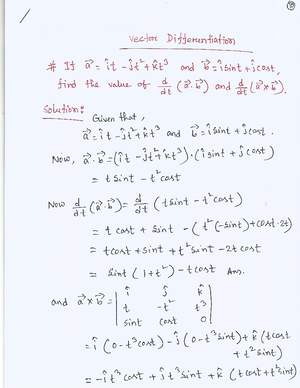 Vector Differentiation
# If a⃗ = ît - ĵt² + k̂t³ and b⃗ = î sint + ĵ cost,
find the value of d/dt (a⃗·b⃗) and d/dt (a⃗×b⃗).
Solution:
Given that,
a⃗ = ît - ĵt² + k̂t³ and b⃗ = î sint + ĵ cost.
Now, a⃗·b⃗ = (ît - ĵt² + k̂t³)·(î sint + ĵ cost)
= t sint - t² cost
Now d/dt (a⃗·b⃗) = d/dt (t sint - t² cost)
= t cost + sint - (t²(-sint) + cost·2t)
= t cost + sint + t² sint - 2t cost
= sint (1+t²) - t cost Ans.
and a⃗×b⃗ = | î ĵ k̂ |
| t -t² t³ |
| sint cost 0 |
= î (0 - t³ cost) - ĵ (0 - t³ sint) + k̂ (t cost
+ t² sint)
= -î t³ cost + ĵ t³ sint + k̂ (t cost + t² sint)